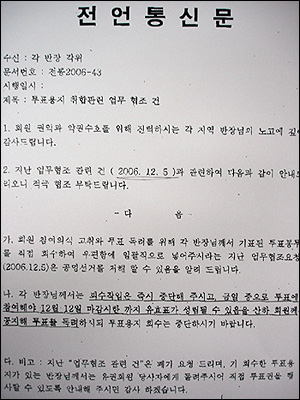 전언통신문
수신 : 각 반장 각위
문서번호 : 전통2006-43
시행일시 :
제목 : 투표용지 취합관련 업무 협조 건
1. 회원 권익과 약권수호를 위해 진력하시는 각 지역 반장님의 노고에 깊
감사드립니다.
2. 지난 업무협조 관련 건 ( 2006. 12. 5 )과 관련하여 다음과 같이 안내드
리오니 적극 협조 부탁드립니다.
- 다 음 -
가. 회원 참여의식 고취와 투표 독려를 위해 각 반장님께서 기표된 투표봉투
를 직접 회수하여 우편함에 일괄적으로 넣어주시라는 지난 업무협조요청
(2006.12.5)은 공명선거를 저해 할 수 있음을 알려 드립니다.
나. 각 반장님께서는 회수작업은 즉시 중단해 주시고, 금일 중으로 투표에
참여해야 12월 12일 마감시한 까지 유효표가 성립될 수 있음을 산하 회원께
공지해 투표를 독려하시되 투표용지 회수는 중단하시기 바랍니다.
다. 비고 : 지난 "업무협조 관련 건"은 폐기 요청 드리며, 기 회수한 투표용
지가 있는 반장님께서는 유권회원 당사자에게 돌려주시어 직접 투표권을 행
사할 수 있도록 안내해 주시면 감사 하겠습니다.